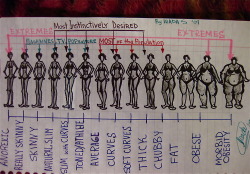 Most Instinctively Desired
EXTREMES
EXTREMES
MOST of the Population
ANOREXIC
REALLY SKINNY
SKINNY
NATURAL SLIM
SLIM with CURVES
TONED/ATHLETIC
AVERAGE
CURVES
SOFT CURVES
THICK
CHUBBY
FAT
OBESE
MORBID
OBESITY